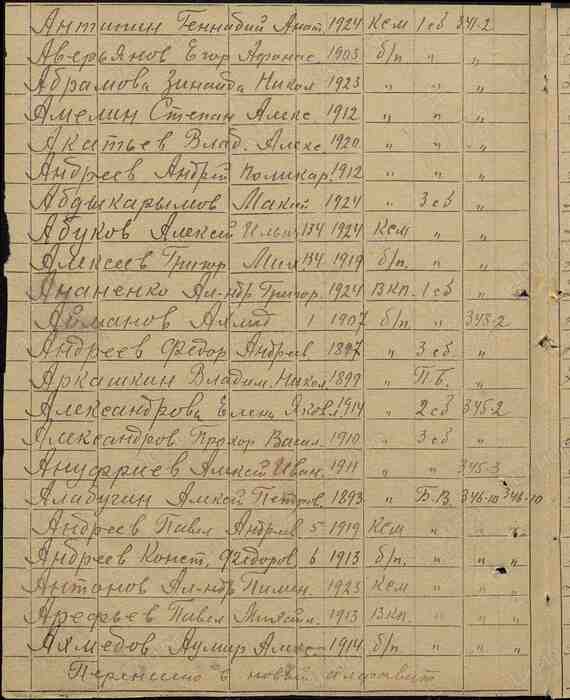 Антипин Геннадий Анат. 1924 Ксм 1 сб 341-2
Аверьянов Егор Афанас. 1903 б/п " "
Абрамова Зинаида Никол 1923 " " "
Амелин Степан Алекс. 1912 " " "
Акатьев Влад. Алекс. 1920 " " "
Андреев Андрей Поликар. 1912 " " "
Абдыкарымов Макий 1924 " 3 сб "
Абуков Алексей Ильич 134 1924 Ксм " "
Алексеев Григор Мих. 134 1919 б/п. " "
Ананенко Ал-ндр Григор. 1924 ВКП. 1 сб "
Айманов Ахмад 1 1907 б/п " 343-2
Андреев Федор Андреев 1897 " 3 сб "
Аркашкин Владим. Никол 1899 " П.Б. "
Александрова Елена Яковл. 1914 " 2 сб 345-2
Александров Прохор Васил. 1910 " 3 сб "
Ануфриев Алексей Иван. 1911 " " 345-3
Алабугин Алексей Петров. 1893 " Б.В. 346-10 346-10
Андреев Павел Андреев 5 1919 Ксм " "
Андреев Конст. Федоров 6 1913 б/п. " " "
Антонов Ал-ндр Пимен. 1923 Ксм " " "
Арефьев Павел Михайл. 1913 ВКП. " "
Ахмедов Аумир Алекс 1914 б/п " " "
Перенисано в новый алфавит